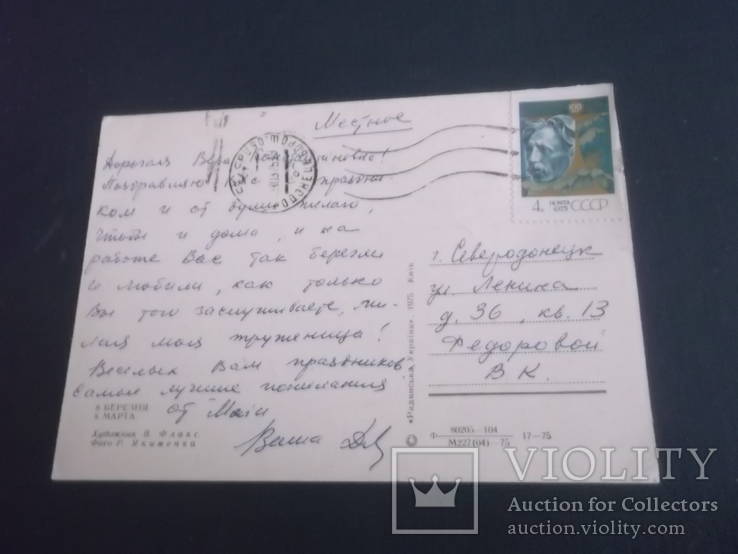 Местное
Дорогая Вера
Поздравляю с праздни-
ком и от души желаю,
чтобы и дома, и на
работе Вас так берегли
и любили, как только
Вы того заслуживаете, ми-
лая моя труженица!
Веселых Вам праздников
самые лучшие пожелания
от Майи
Ваша
8 БЕРЕЗНЯ
8 МАРТА
Художник В. Флакс
Фото Р. Якименка
4к ПОЧТА
1975 СССР
г. Северодонецк
ул Ленина
д. 36, кв. 13
Федоровой
В К.
«Радянська Україна». 1975. Київ
Ф 80205-104
М227(04)-75 17-75
VIOLITY
Auction for Collectors
auction.violity.com